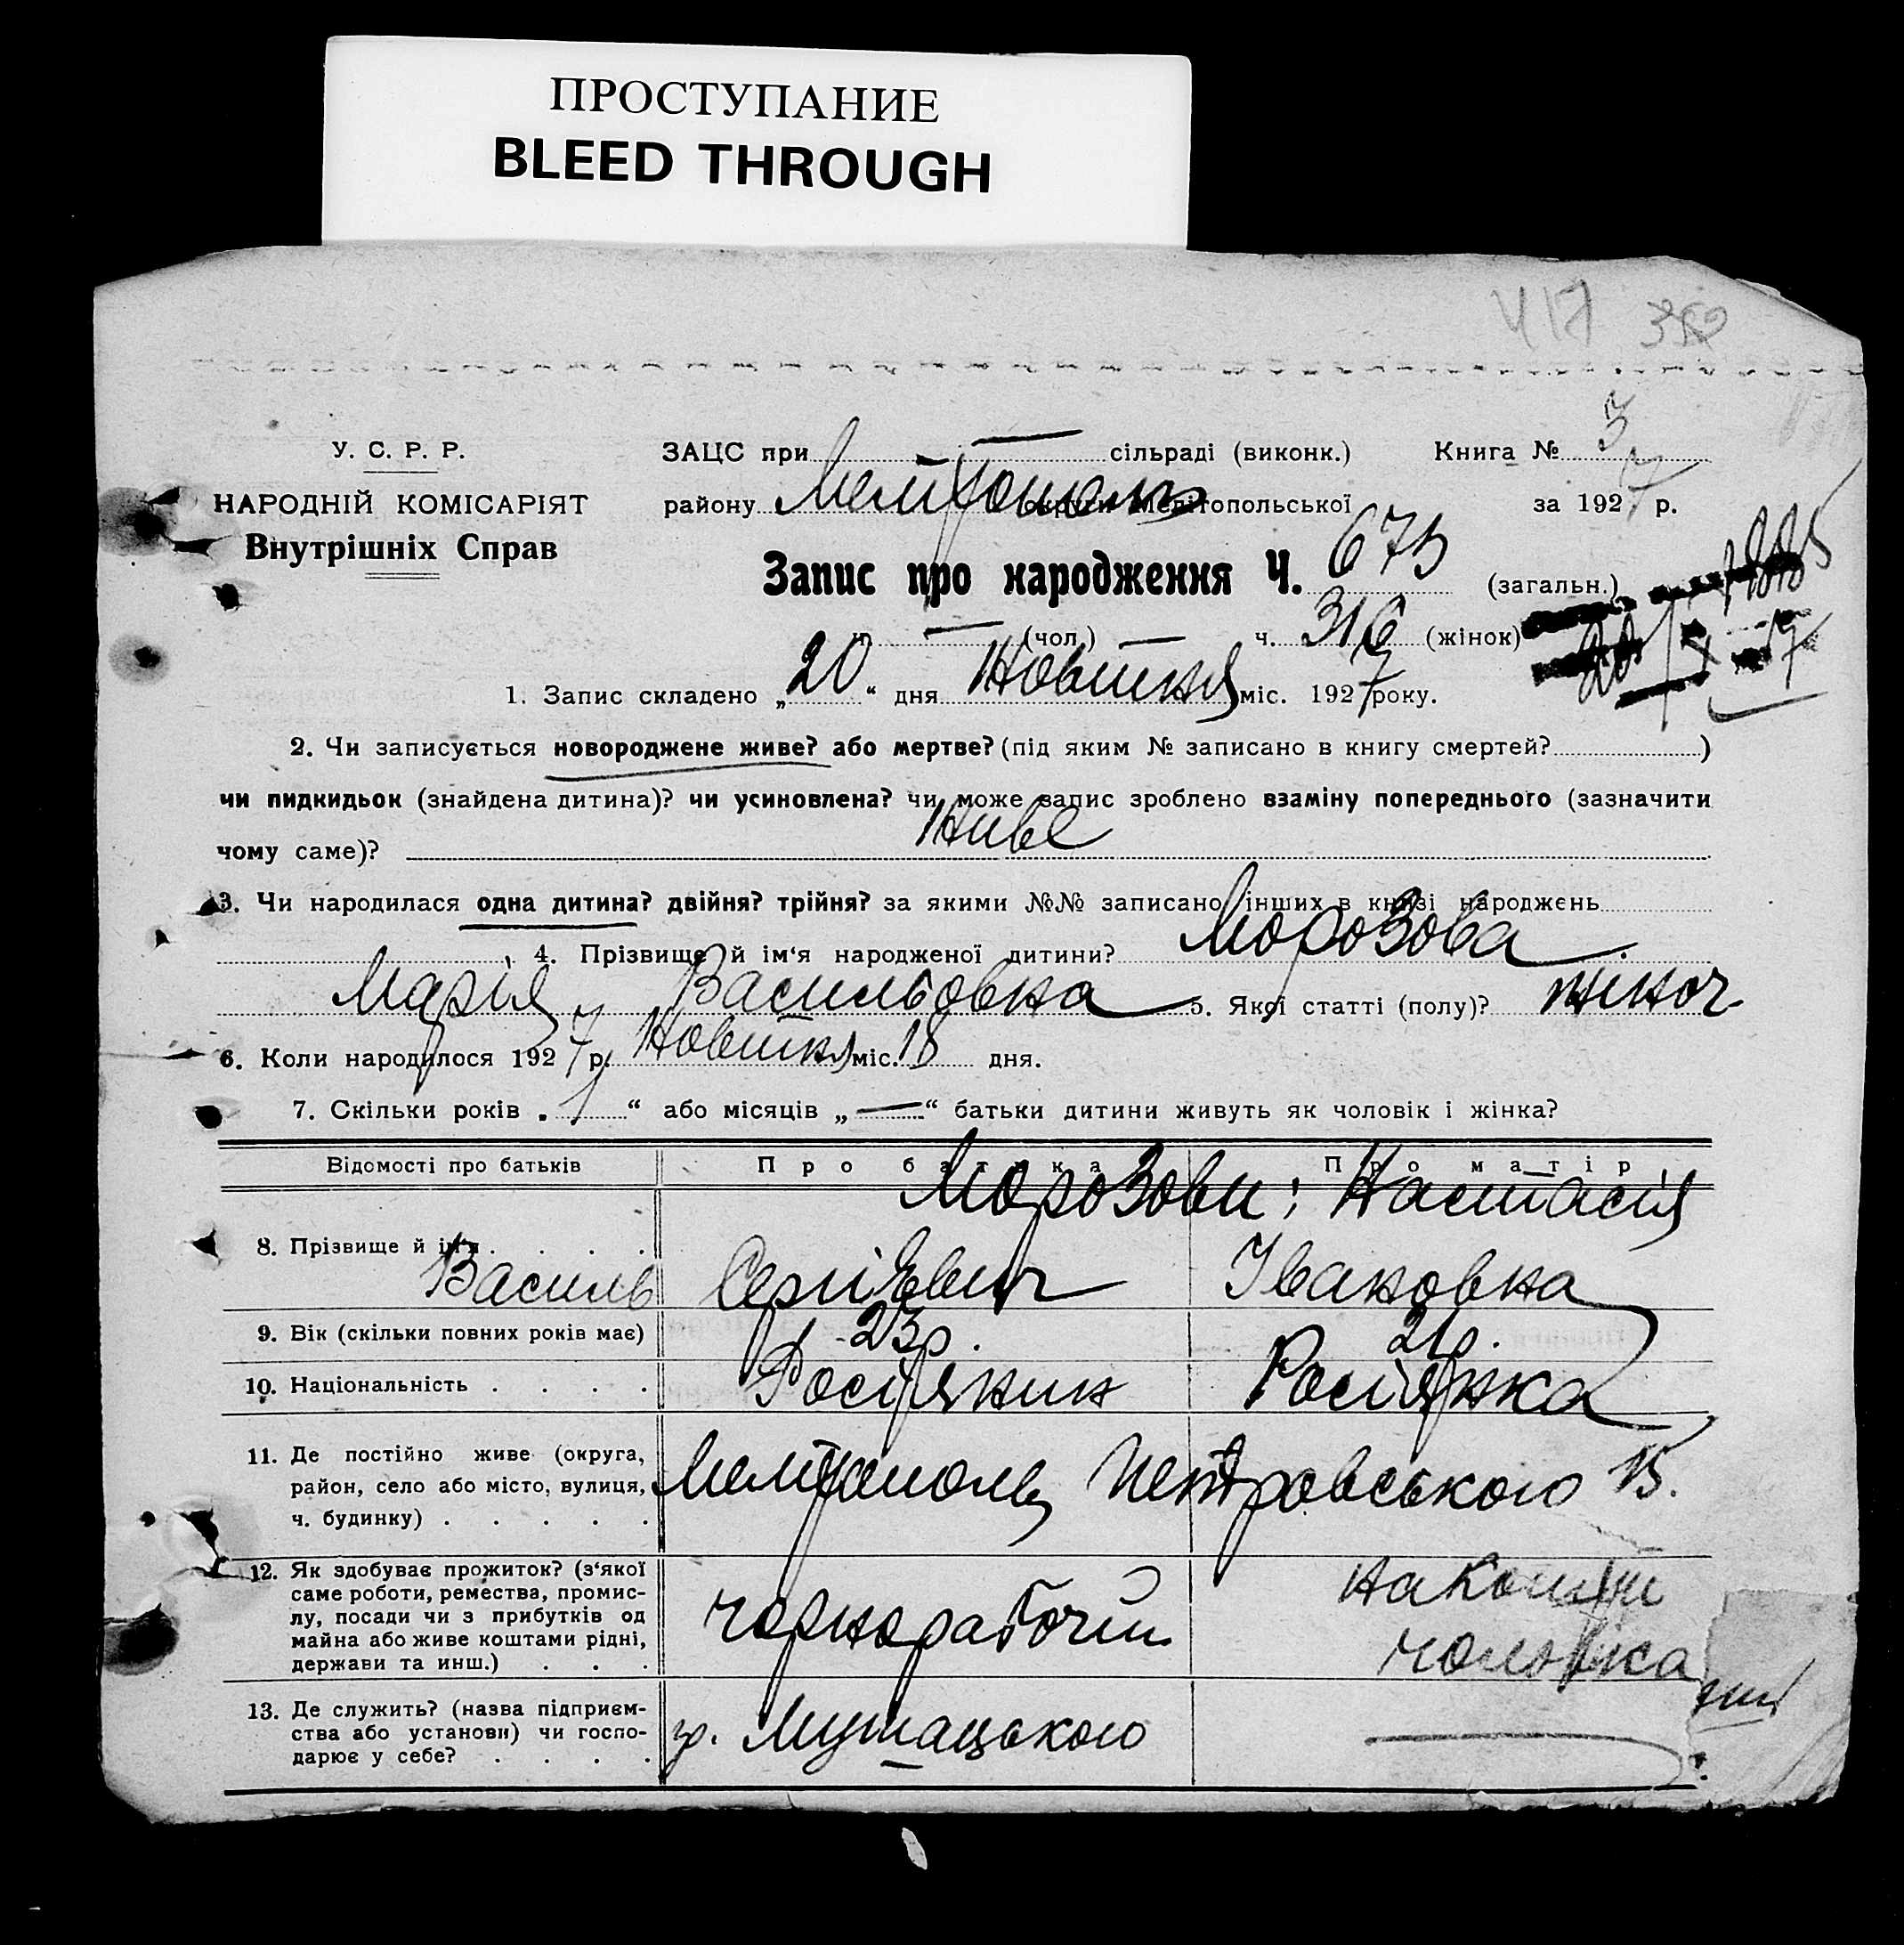 ПРОСТУПАНИЕ
BLEED THROUGH
417 352
У. С. Р. Р.
НАРОДНІЙ КОМІСАРІЯТ
Внутрішніх Справ
ЗАЦС при — сільраді (виконк.) Книга № 3
району Мелітополь округи Мелітопольської за 1927 р.
Запис про народження Ч. 675 (загальн.)
ч. — (чол.) — ч. 316 (жінок)
1. Запис складено „20“ дня Новітня міс. 1927 року.
2. Чи записується новороджене живе? або мертве? (під яким № записано в книгу смертей? )
чи пидкидьок (знайдена дитина)? чи усиновлена? чи може запис зроблено взаміну попереднього (зазначити
чому саме)? Живе
3. Чи народилася одна дитина? двійня? трійня? за якими №№ записано інших в книзі народжень
4. Прізвище й ім‘я народженої дитини? Морозова
Марія Васильовна 5. Якої статті (полу)? жіноч
6. Коли народилося 1927 р. Новітня міс. 18 дня.
7. Скільки років „1“ або місяців „—“ батьки дитини живуть як чоловік і жінка?
Відомості про батьків Про батька Про матір
Морозови; Настасія
8. Прізвище й ім‘я . . . .
Василь Сергієвич Івановна
9. Вік (скільки повних років має) 23р. 21р.
10. Національність . . . . Росіянин Росіянка
11. Де постійно живе (округа,
район, село або місто, вулиця,
ч. будинку) . . . . .
Мелітополь Петровського 15.
12. Як здобуває прожиток? (з‘якої
саме роботи, ремества, промис-
лу, посади чи з прибутків од
майна або живе коштами рідні,
держави та инш.) . . .
чорнорабочий на кошти
чоловіка
13. Де служить? (назва підприєм-
ства або установи) чи госпо-
дарює у себе? . . . .
гр. —